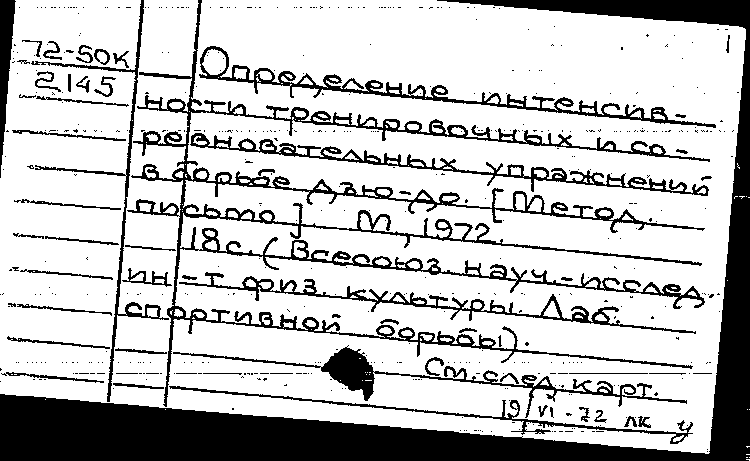 72-50к
2145
Определение интенсив-
ности тренировочных и со-
ревновательных упражнений
в борьбе дзю-до. [Метод.
письмо] М., 1972.
18 с. (Всесоюз. науч.-исслед.
ин-т физ. культуры. Лаб.
спортивной борьбы).
См. след. карт.
19/VI-72 лк